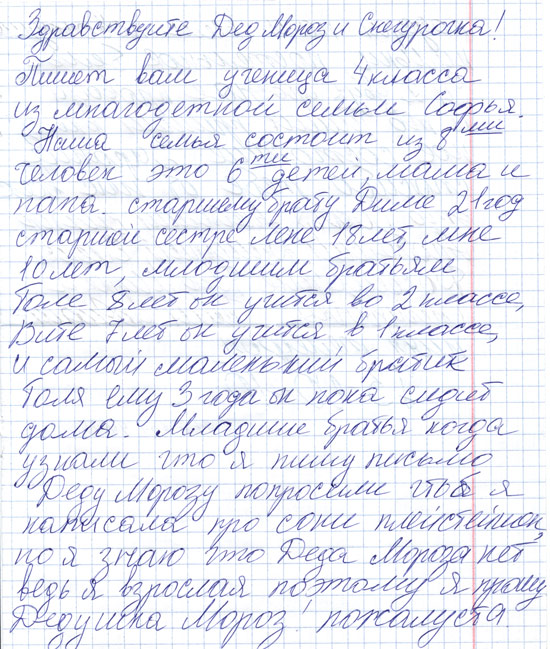 Здравствуйте Дед Мороз и Снегурочка!
Пишет вам ученица 4 класса
из многодетной семьи Софья.
Наша семья состоит из 8ми
человек это 6ти детей, мама и
папа. старшему брату Диме 21 год
старшей сестре Лене 18 лет, мне
10 лет, младшим братьям
Толе 8 лет он учится во 2 классе,
Вите 7 лет он учится в 1 классе,
и самый маленький братик
Толя ему 3 года он пока сидит
дома. Младшие братья когда
узнали что я пишу письмо
Деду Морозу попросили чтоб я
написала про сони плейстейшон,
но я знаю что Деда Мороза нет
ведь я взрослая поэтому я прошу
Дедушка Мороз! пожалуста